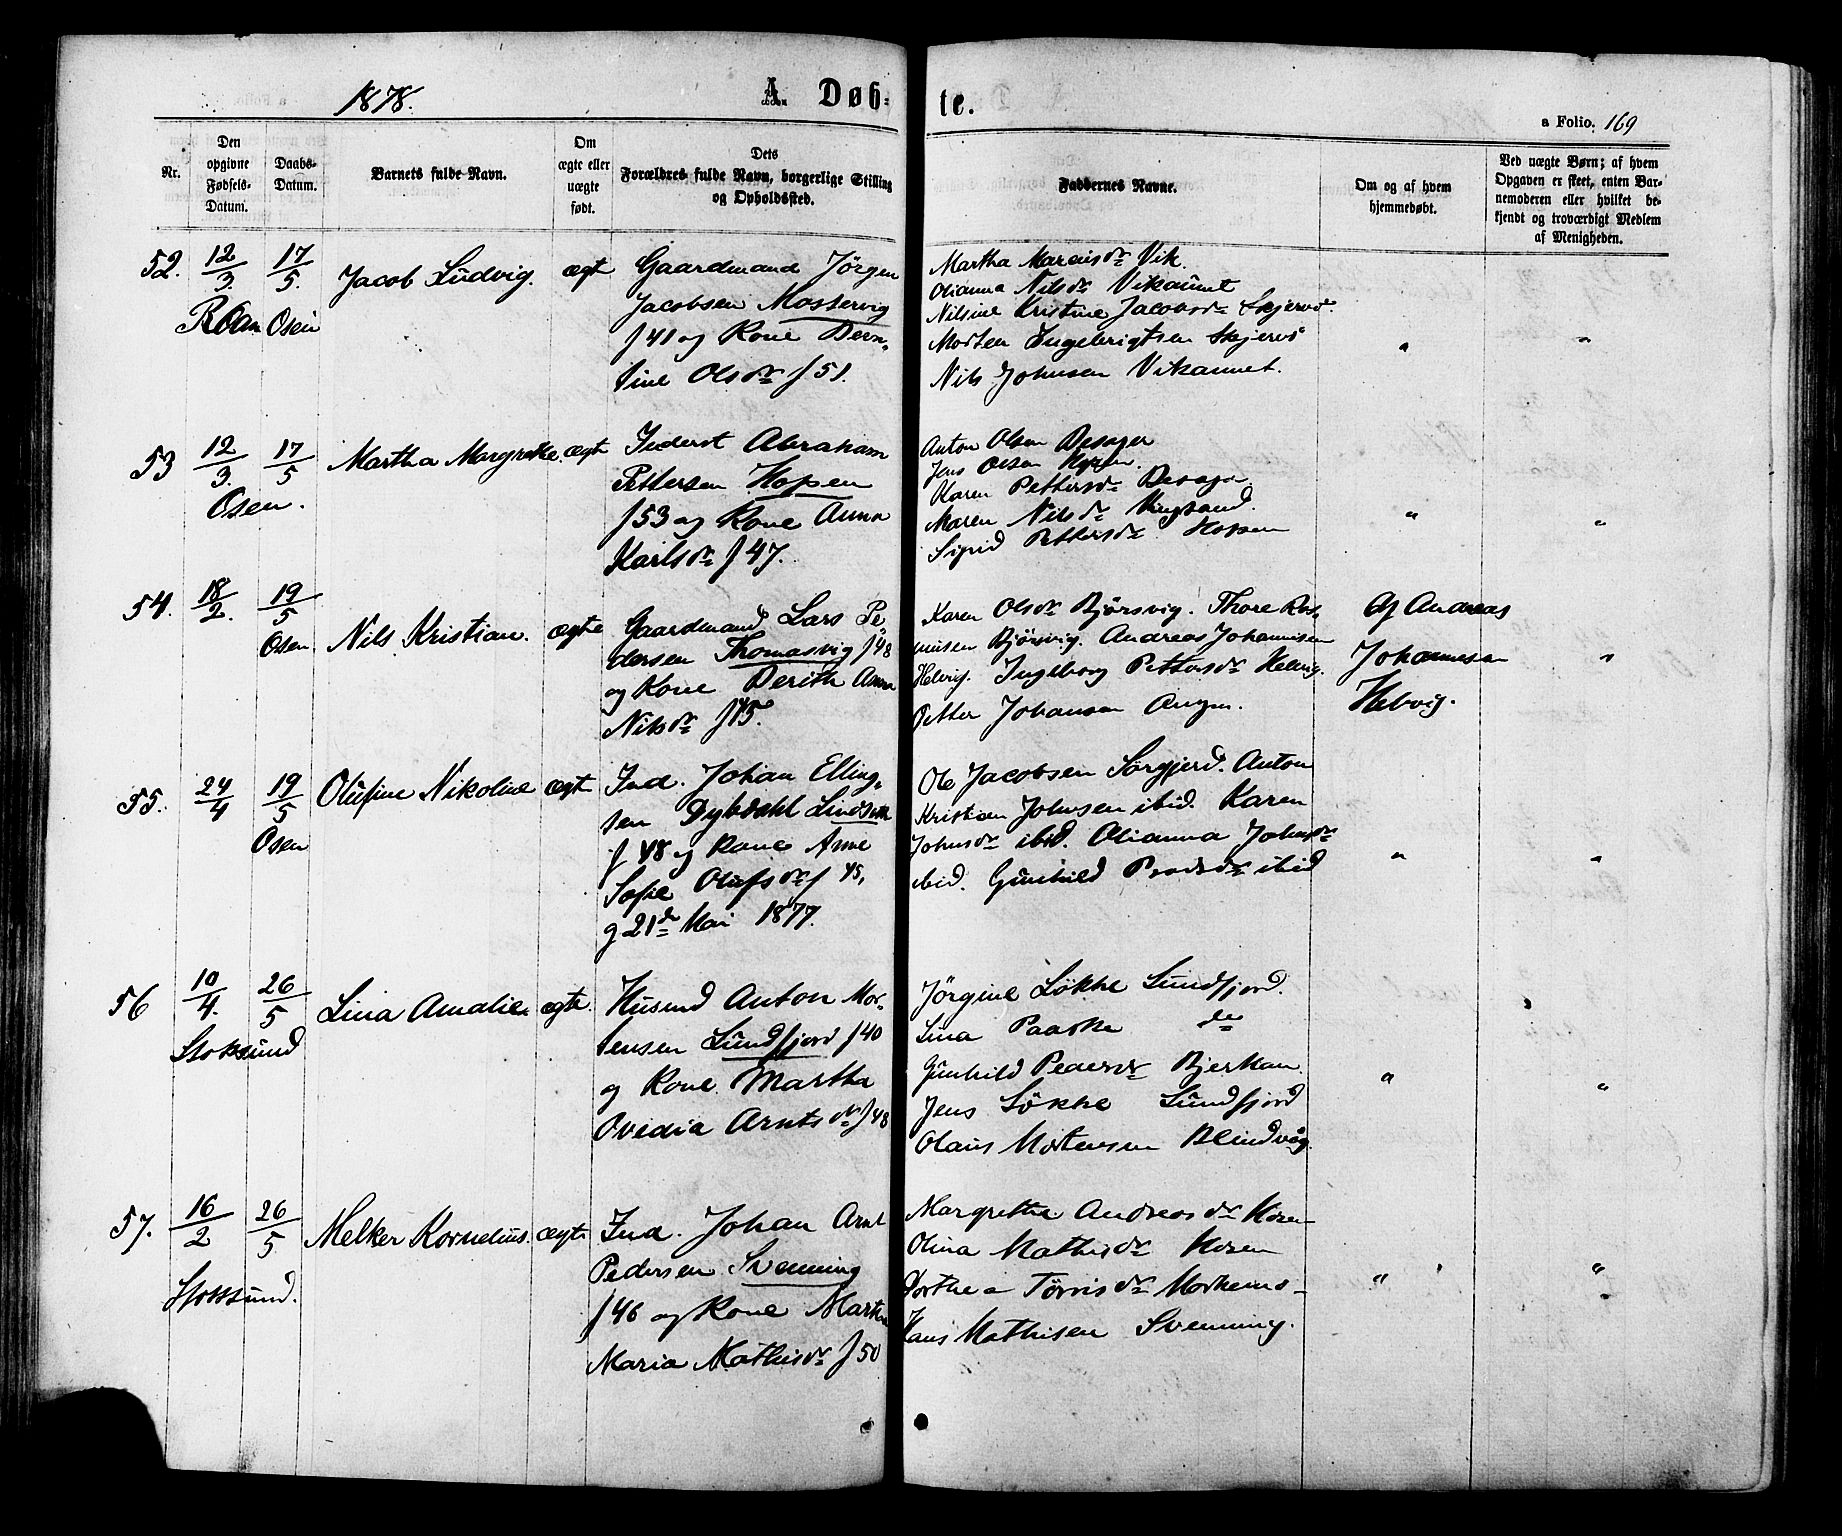 1878.
A Døb-
te.
a Folio. 169
Nr.
Den opgivne Fødsels-Datum.
Daabs-Datum.
Barnets fulde Navn.
Om ægte eller uægte født.
Dets Forældres fulde Navn, borgerlige Stilling og Opholdssted.
Faddernes Navne.
Om og af hvem hjemmedøbt.
Ved uægte Børn; af hvem Opgaven er skeet, enten Barnemoderen eller hvilket bekjendt og troværdigt Medlem af Menigheden.
52. 12/3. 17/5. Jacob Ludvig. ægt
Roan Osen
Gaardmand Jørgen
Jacobsen Mastervig
f 41 og Kone Bern-
tine Olsdr f 51.
Martha Marcusdr Vik.
Olianna Nilsdr Vikaunet
Nilsine Kristine Jacobsdr Skjervø.
Morten Engebrigtsen Skjervø
Nils Johnsen Vikaunet.
" "
53 12/3. 17/5 Martha Margrethe. ægte
Osen.
Inderst Abraham
Pettersen Hopen
f 53 og Kone Anna
Karlsdr f 47.
Anton Olsen Besager
Jens Olsen Hopen.
Karen Pettersdr Besager.
Maren Nilsdr Vingsand.
Sigrid Pettersdr Hopen
" "
54. 18/2. 19/5 Nils Kristian. ægte
Osen.
Gaardmand Lars Pe-
dersen Thomasvig f 48
og Kone Berith Anna
Nilsdr f 45.
Karen Olsdr Bjørsvig. Thore Ras-
musen Bjørsvig. Andreas Johannesen
Helvig. Ingeborg Pettersdr Helvig.
Petter Johansen Angen.
Af Andreas
Johannesen
Helvig.
"
55. 24/4 19/5 Olufine Nikoline ægte
Osen
Ind. Johan Elling-
sen Dybdahl Lindsøen
f 48 og Kone Anne
Sofie Olufsdr f 45,
g 21de Mai 1877.
Ole Jacobsen Sørgjerd. Anton
Kristian Johnsen ibid. Karen
Johnsdr ibid. Olianna Johnsdr
ibid. Gunhild Paulsdr ibid
" "
56 10/4. 26/5 Lina Amalie. ægte.
Stoksund
Husmd Anton Mor-
tensen Sundfjord f 40
og Kone Martha
Ovedia Arntsdr f 48
Jørgine Løkke Sundfjord.
Lina Paaske do
Gunhild Pedersdr Bjerkan.
Jens Løkke Sundfjord
Olaus Mortensen Blindvåg.
" "
57. 16/2 26/5 Melker Kornelius. ægte
Stoksund.
Ind. Johan Arnt
Pedersen Svenning
f 46 og Kone Martha
Maria Mathisdr f 50
Margrethe Andreasdr Horen
Olina Mathisdr Horen
Dorthea Tørrisdr Morkemo
Hans Mathisen Svenning.
" "